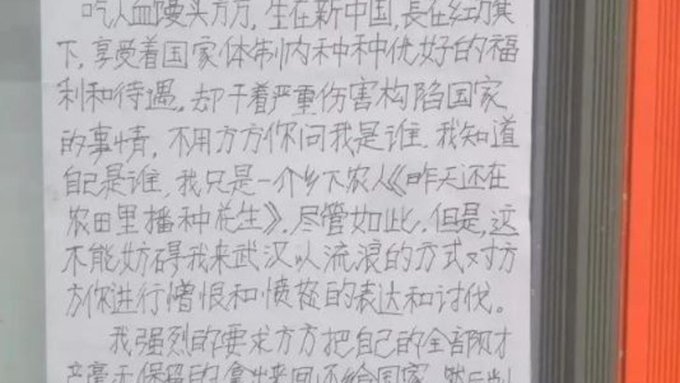 吃人血馒头方方，生在新中国，長在红旗
下，享受着国家体制内种种优好的福
利和待遇，却干着严重伤害构陷国家
的事情，不用方方你问我是谁，我知道
自己是谁，我只是一个乡下农人《昨天还在
农田里播种花生》，尽管如此，但是，这
不能妨碍我来武汉以流浪的方式对方
方你进行憎恨和愤怒的表达和讨伐。
我强烈的要求方方把自己的全部财
产毫无保留的拿出来回还给国家，然后